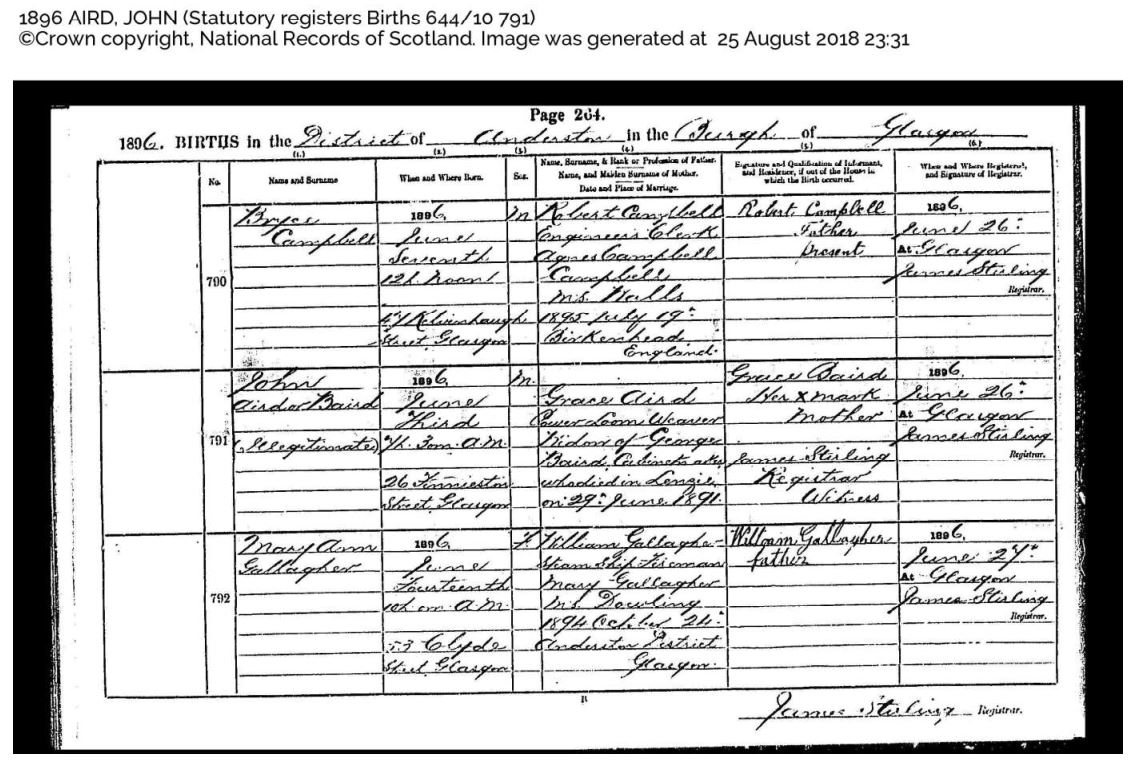 1896 AIRD, JOHN (Statutory registers Births 644/10 791)
©Crown copyright, National Records of Scotland. Image was generated at 25 August 2018 23:31
Page 264.
1896. BIRTHS in the District of Anderston in the Burgh of Glasgow
(1.) (2.) (3.) (4.) (5.) (6.)
No.
Name and Surname
When and Where Born.
Sex.
Name, Surname, & Rank or Profession of Father.
Name, and Maiden Surname of Mother.
Date and Place of Marriage.
Signature and Qualification of Informant,
and Residence, if out of the House in
which the Birth occurred.
When and Where Registered,
and Signature of Registrar.
790
Bryce
Campbell
1896,
June
Seventh
12h. Noon
47 Kelvinhaugh
Street, Glasgow
M
Robert Campbell
Engineer's Clerk
Agnes Campbell
Campbell
M.S. Walls
1895 July 19th
Birkenhead
England.
Robert Campbell
Father
Present
1896,
June 26th
At Glasgow
James Stirling
Registrar.
791
John
Aird or Baird
(Illegitimate)
1896,
June
Third
3om. A.M.
26 Finnieston
Street, Glasgow
M.
Grace Aird
Power Loom Weaver
Widow of George
Baird, Cabinetmaker
who died in Lenzie
on 29th June 1891.
Grace Baird
Her x mark
Mother
James Stirling
Registrar
Witness
1896,
June 26th
At Glasgow
James Stirling
Registrar.
792
Mary Ann
Gallagher
1896,
June
Fourteenth
10h. om. A.M.
53 Clyde
Street Glasgow
F
William Gallagher
Steam Ship Fireman
Mary Gallagher
M.S. Dowling
1894 October 24th
Anderston District
Glasgow.
William Gallagher
father
1896,
June 27th
At Glasgow
James Stirling
Registrar.
James Stirling Registrar.